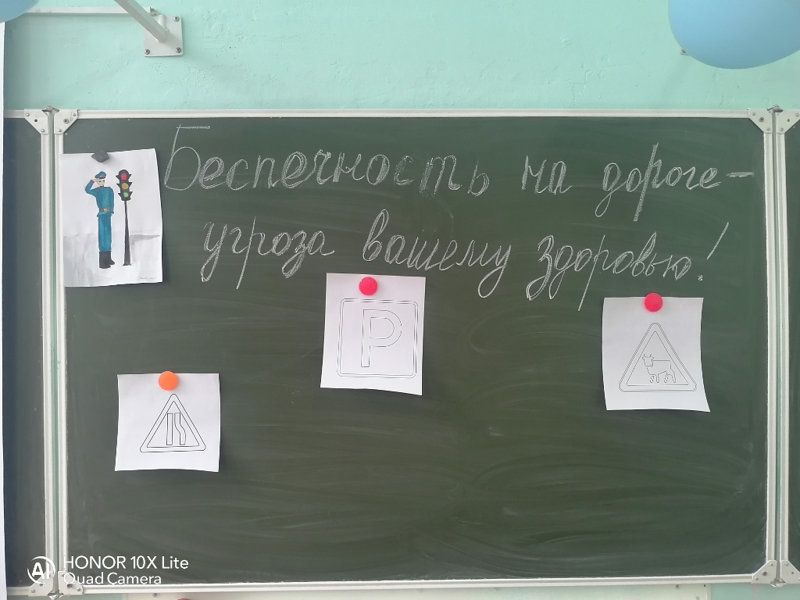 Беспечность на дороге -
угроза вашему здоровью!
P
HONOR 10X Lite
Quad Camera
AI